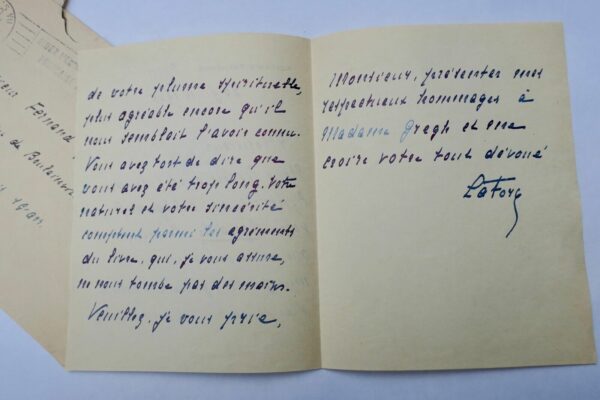 eur Fernand
de Boulainvil
de votre plume spirituelle,
plus agréable encore qu'il
nous semblait l'avoir connu.
Vous avez tort de dire que
vous avez été trop long. Votre
naturel et votre sincérité
comptent parmi les agréments
du livre, qui, je vous assure,
ne nous tombe pas des mains.
Veuillez, je vous prie,
Monsieur, présenter mes
respectueux hommages à
Madame Gregh et me
croire votre tout dévoué
La Force